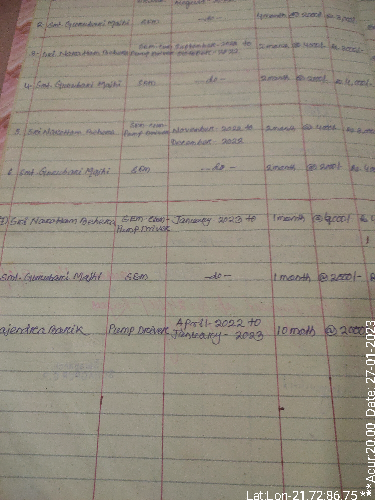 August - 2022
2. Smt. Gurubari Majhi SEM -do- 2000/-
3. Sri Narottam Behera SEM-cum- September - 2022 to 2 month @ 4000/-
Pump Driver October - 2022
4. Smt. Gurubari Majhi SEM -do- 2 month @ 2000/- Rs 4,000/-
5. Sri Narottam Behera SEM-cum- November - 2022 to 2 month @ 4000/-
Pump Driver December - 2022
6. Smt. Gurubari Majhi SEM -do- 2 month @ 2000/- Rs.
7) Sri Narottam Behera SEM-cum- January 2023 to 1 month @
Pump Driver
Smt. Gurubari Majhi SEM -do- 1 month @ 2000/-
ajendra Barik Pump Driver April - 2022 to 10 month @ 2000
January - 2023
Lat:Lon-21.72:86.75
***Acur:20.00, Date, 27-01-2023